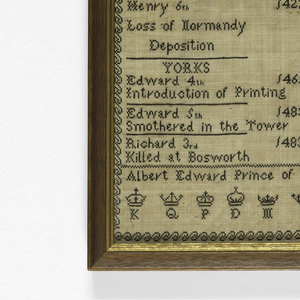 Henry 6th 1422
Loss of Normandy
Deposition
YORKS
Edward 4th 146
Introduction of Printing
Edward 5th 1483
Smothered in the Tower
Richard 3rd 1483
Killed at Bosworth
Albert Edward Prince of
K Q P D M